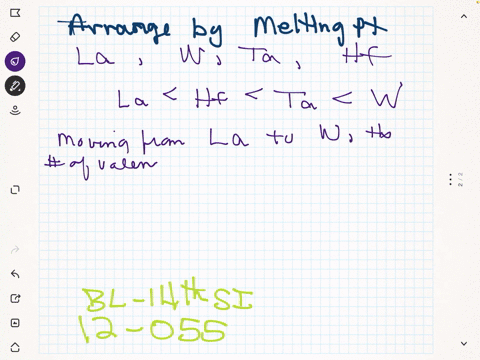 Arrange by Melting pt
La, W, Ta, Hf
La < Hf < Ta < W
Moving from La to W, the
# of valen
BL-14th SI
12-055
2/2